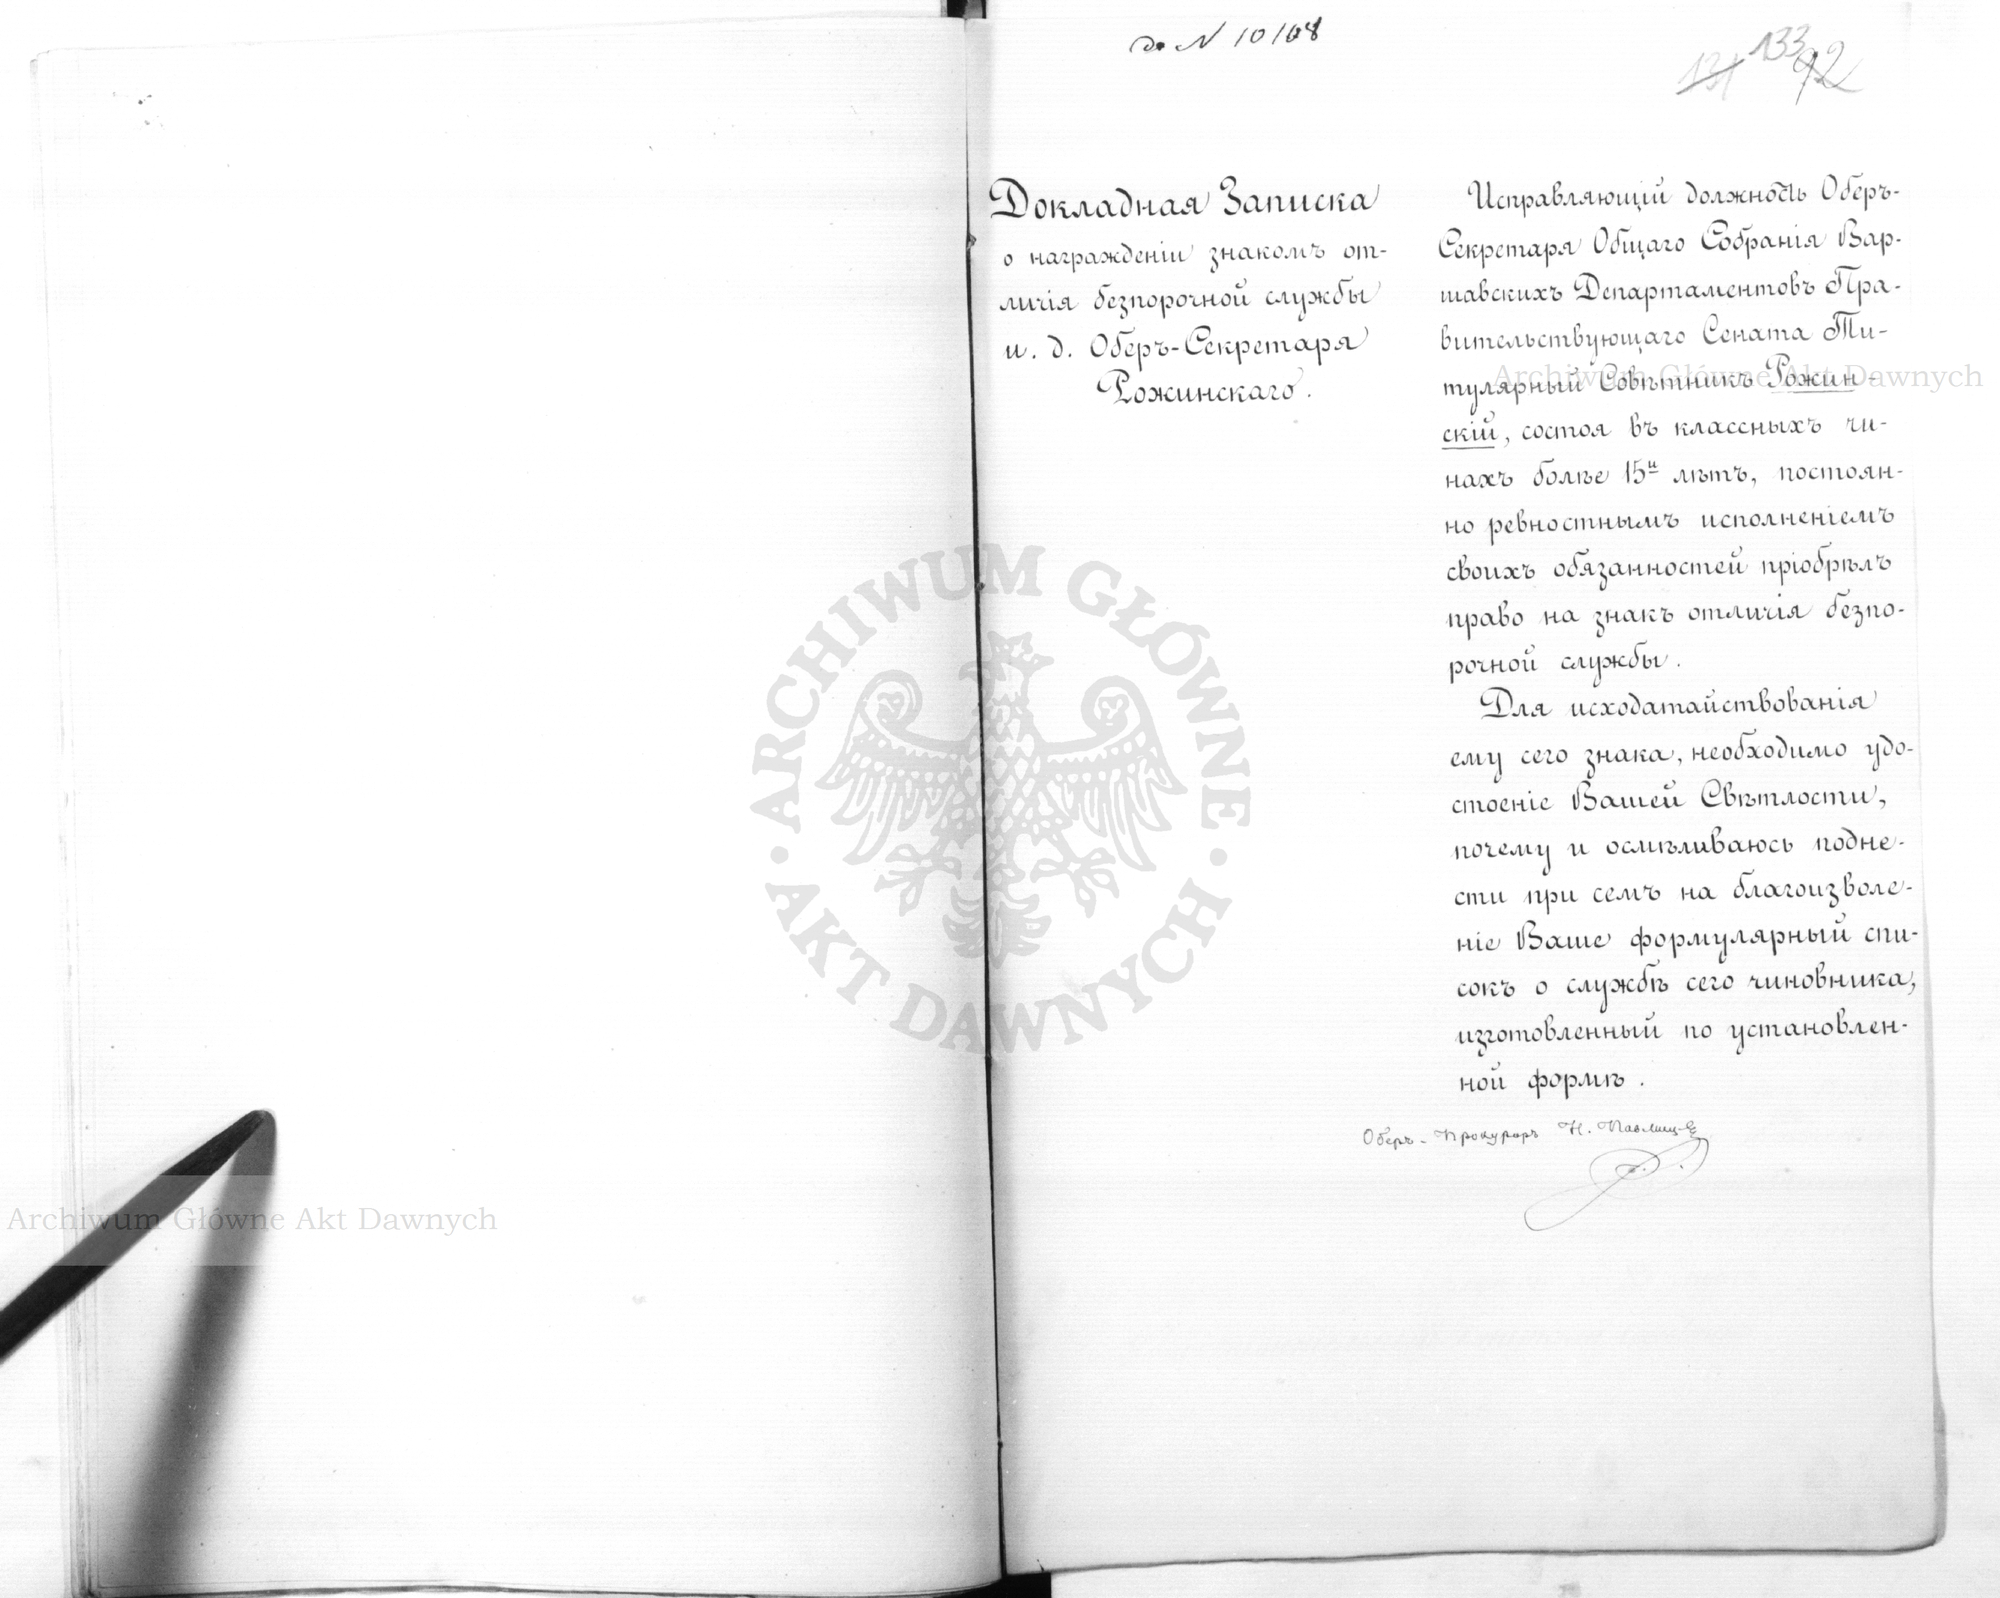 до N 10108
131 133 92
Докладная Записка
о награжденіи знакомъ от-
личія безпорочной службы
и. д. Оберъ-Секретаря
Рожинскаго.
Исправляющій должность Оберъ-
Секретаря Общаго Собранія Вар-
шавскихъ Департаментовъ Пра-
вительствующаго Сената Ти-
тулярный Совѣтникъ Рожин-
скій, состоя въ классныхъ чи-
нахъ болѣе 15и лѣтъ, постоян-
но ревностнымъ исполненіемъ
своихъ обязанностей пріобрѣлъ
право на знакъ отличія безпо-
рочной службы.
Для исходатайствованія
ему сего знака, необходимо удо-
стоеніе Вашей Свѣтлости,
почему и осмѣливаюсь подне-
сти при семъ на благоизволе-
ніе Ваше формулярный спи-
сокъ о службѣ сего чиновника,
изготовленный по установлен-
ной формѣ.
Оберъ-Прокуроръ Н.
Archiwum Główne Akt Dawnych
ARCHIWUM GŁÓWNE
AKT DAWNYCH
Archiwum Główne Akt Dawnych